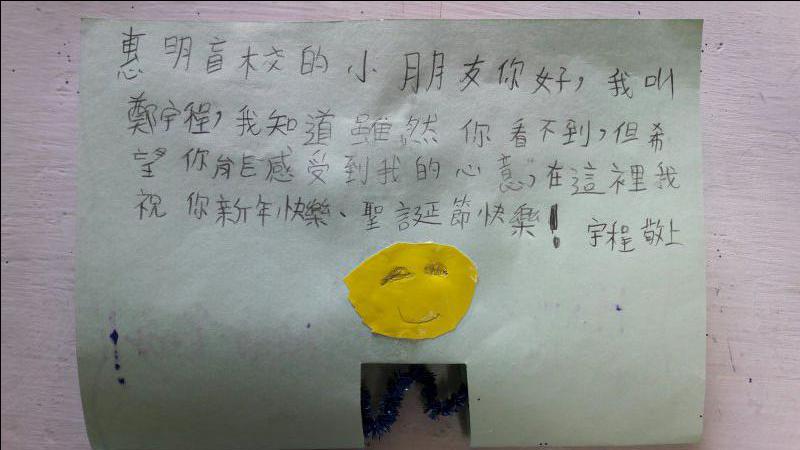 惠明盲校的小朋友你好，我叫
鄭宇程，我知道雖然你看不到，但希
望你能感受到我的心意，在這裡我
祝你新年快樂、聖誕節快樂！
宇程敬上